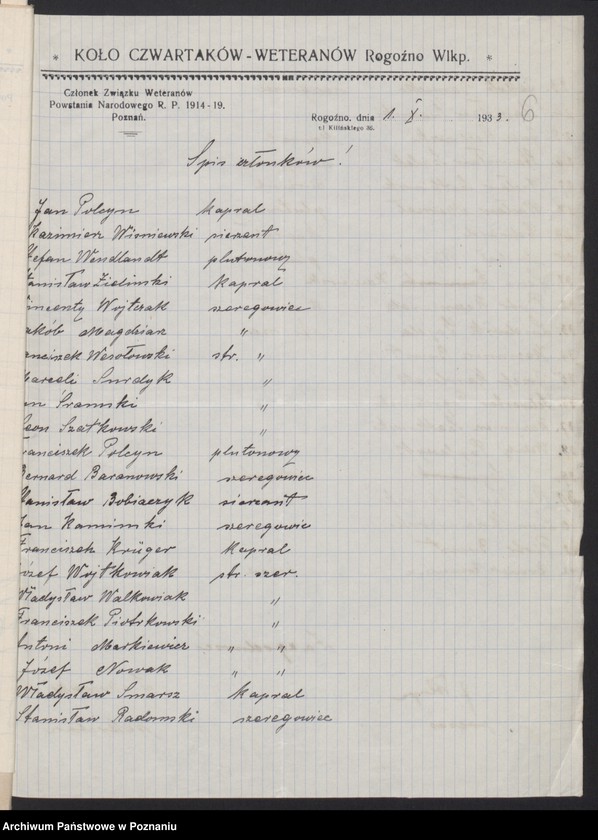 * KOŁO CZWARTAKÓW-WETERANÓW Rogoźno Wlkp. *
Członek Związku Weteranów
Powstania Narodowego R. P. 1914-19.
Poznań.
Rogoźno, dnia 1. X. 1933. 6
ul Kilińskiego 36.
Spis członków!
Jan Polcyn kapral
Kazimierz Wiśniewski sierżant
Stefan Wendlandt plutonowy
Stanisław Zieliński kapral
Wincenty Wojtczak szeregowiec
akób Magdziarz "
anciszek Wesołowski str. "
Marceli Surdyk "
an Sramski "
Leon Szatkowski "
Franciszek Polcyn plutonowy
Bernard Baranowski szeregowiec
Stanisław Bobiaczyk sierżant
Jan Kamiński szeregowic
Franciszek Krüger kapral
Józef Wojtkowiak str. szer.
Władysław Walkowiak "
Franciszek Piotrkowski "
Antoni Markiewicz " "
Józef Nowak " "
Władysław Smarsz kapral
Stanisław Radomski szeregowiec
Archiwum Państwowe w Poznaniu